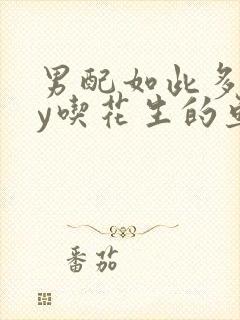 男配如此多
y喫花生的
番茄